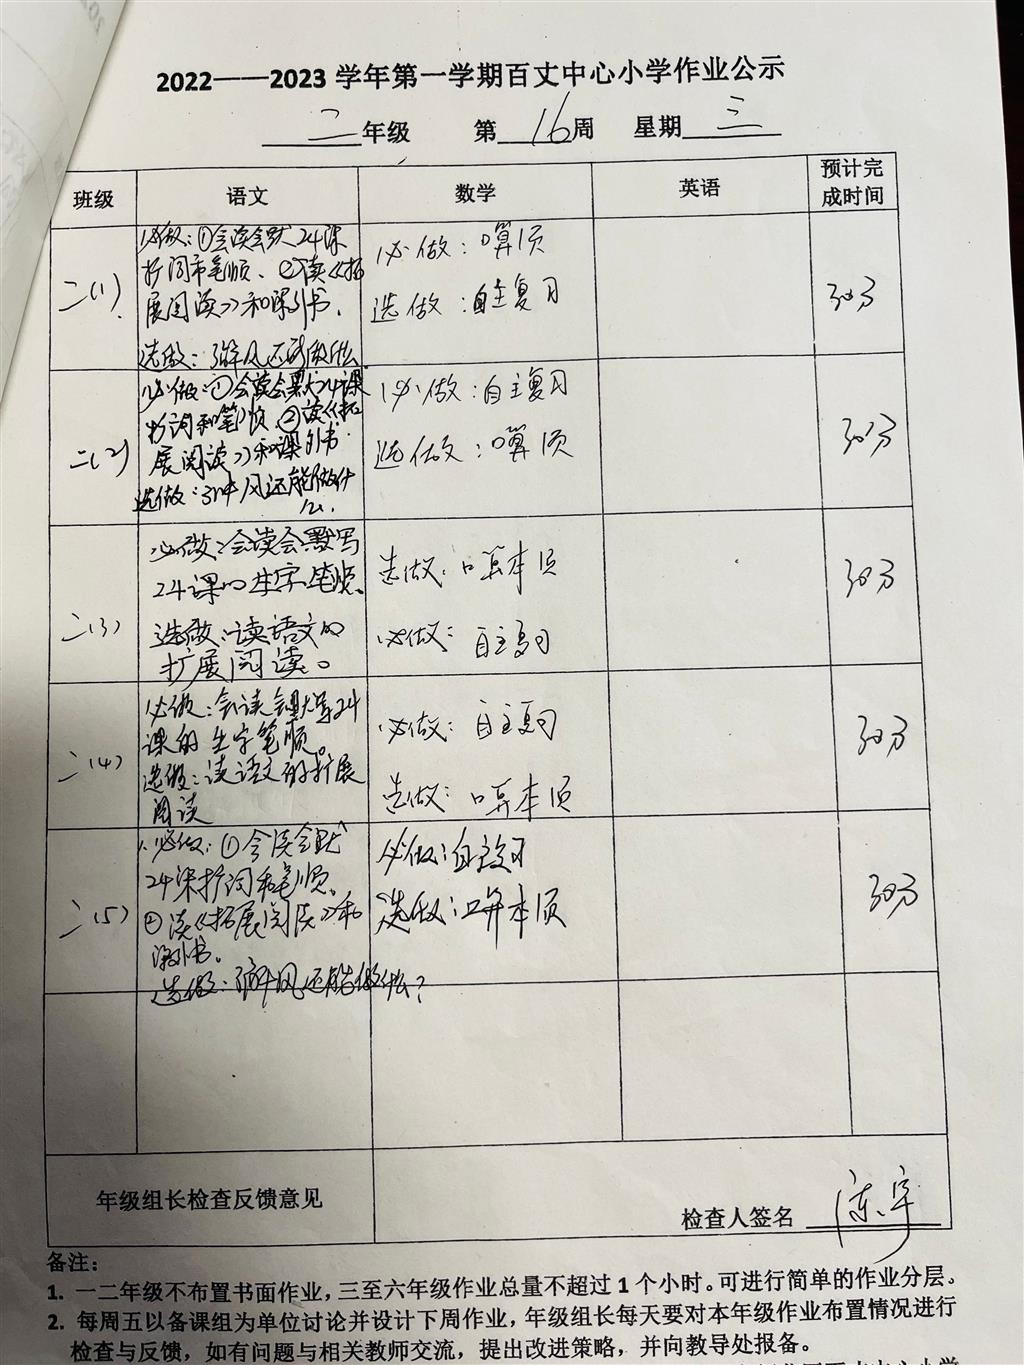 2022——2023 学年第一学期百丈中心小学作业公示
二年级 第 16 周 星期 三
班级 语文 数学 英语 预计完成时间
二(1)
必做：①会读会默24课
扩词和笔顺、②读《拓
展阅读》和课外书.
选做： 风还能做什么
必做：口算1页
选做：自主复习
30分
二(2)
必做：①会读会默24课
扩词和笔顺 ②读《拓
展阅读》和课外书
选做： 风还能做什
么.
必做：自主复习
选做：口算1页
30分
二(3)
必做：会读会默写
24课的生字笔顺.
选做：读语文的
扩展阅读。
选做：口算本1页
必做：自主复习
30分
二(4)
必做：会读会默写24
课的生字笔顺。
选做：读语文的扩展
阅读
必做：自主复习
选做：口算本1页
30分
二(5)
必做：①会读会默
24课扩词和笔顺.
②读《拓展阅读》和
课外书.
选做： 风还能做什么？
必做：自主复习
选做：口算本1页
30分
年级组长检查反馈意见
检查人签名 陈宇
备注：
1. 一二年级不布置书面作业，三至六年级作业总量不超过 1 个小时。可进行简单的作业分层。
2. 每周五以备课组为单位讨论并设计下周作业，年级组长每天要对本年级作业布置情况进行
检查与反馈，如有问题与相关教师交流，提出改进策略，并向教导处报备。